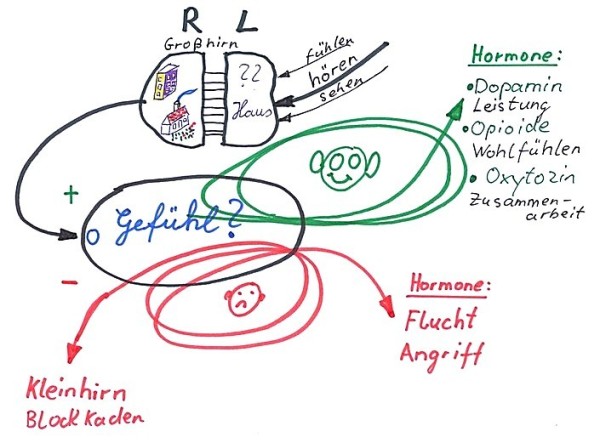 R L
Großhirn
??
Haus
fühlen
hören
sehen
Hormone:
• Dopamin
Leistung
• Opioide
Wohlfühlen
• Oxytozin
Zusammen-
arbeit
+
Gefühl?
-
Hormone:
Flucht
Angriff
Kleinhirn
Blockaden